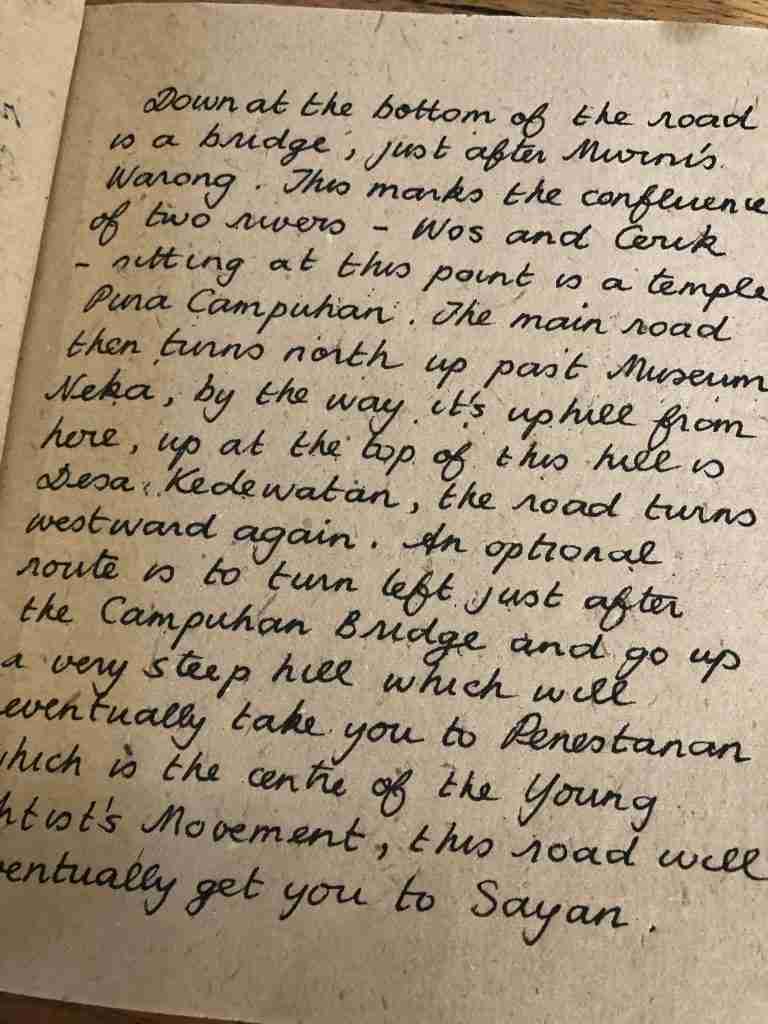 Down at the bottom of the road
is a bridge, just after Murni's
Warong. This marks the confluence
of two rivers - Wos and Cerik
- sitting at this point is a temple
Pura Campuhan. The main road
then turns north up past Museum
Neka, by the way it's uphill from
here, up at the top of this hill is
Desa Kedewatan, the road turns
westward again. An optional
route is to turn left just after
the Campuhan Bridge and go up
a very steep hill which will
eventually take you to Penestanan
which is the centre of the Young
Artist's Movement, this road will
eventually get you to Sayan.